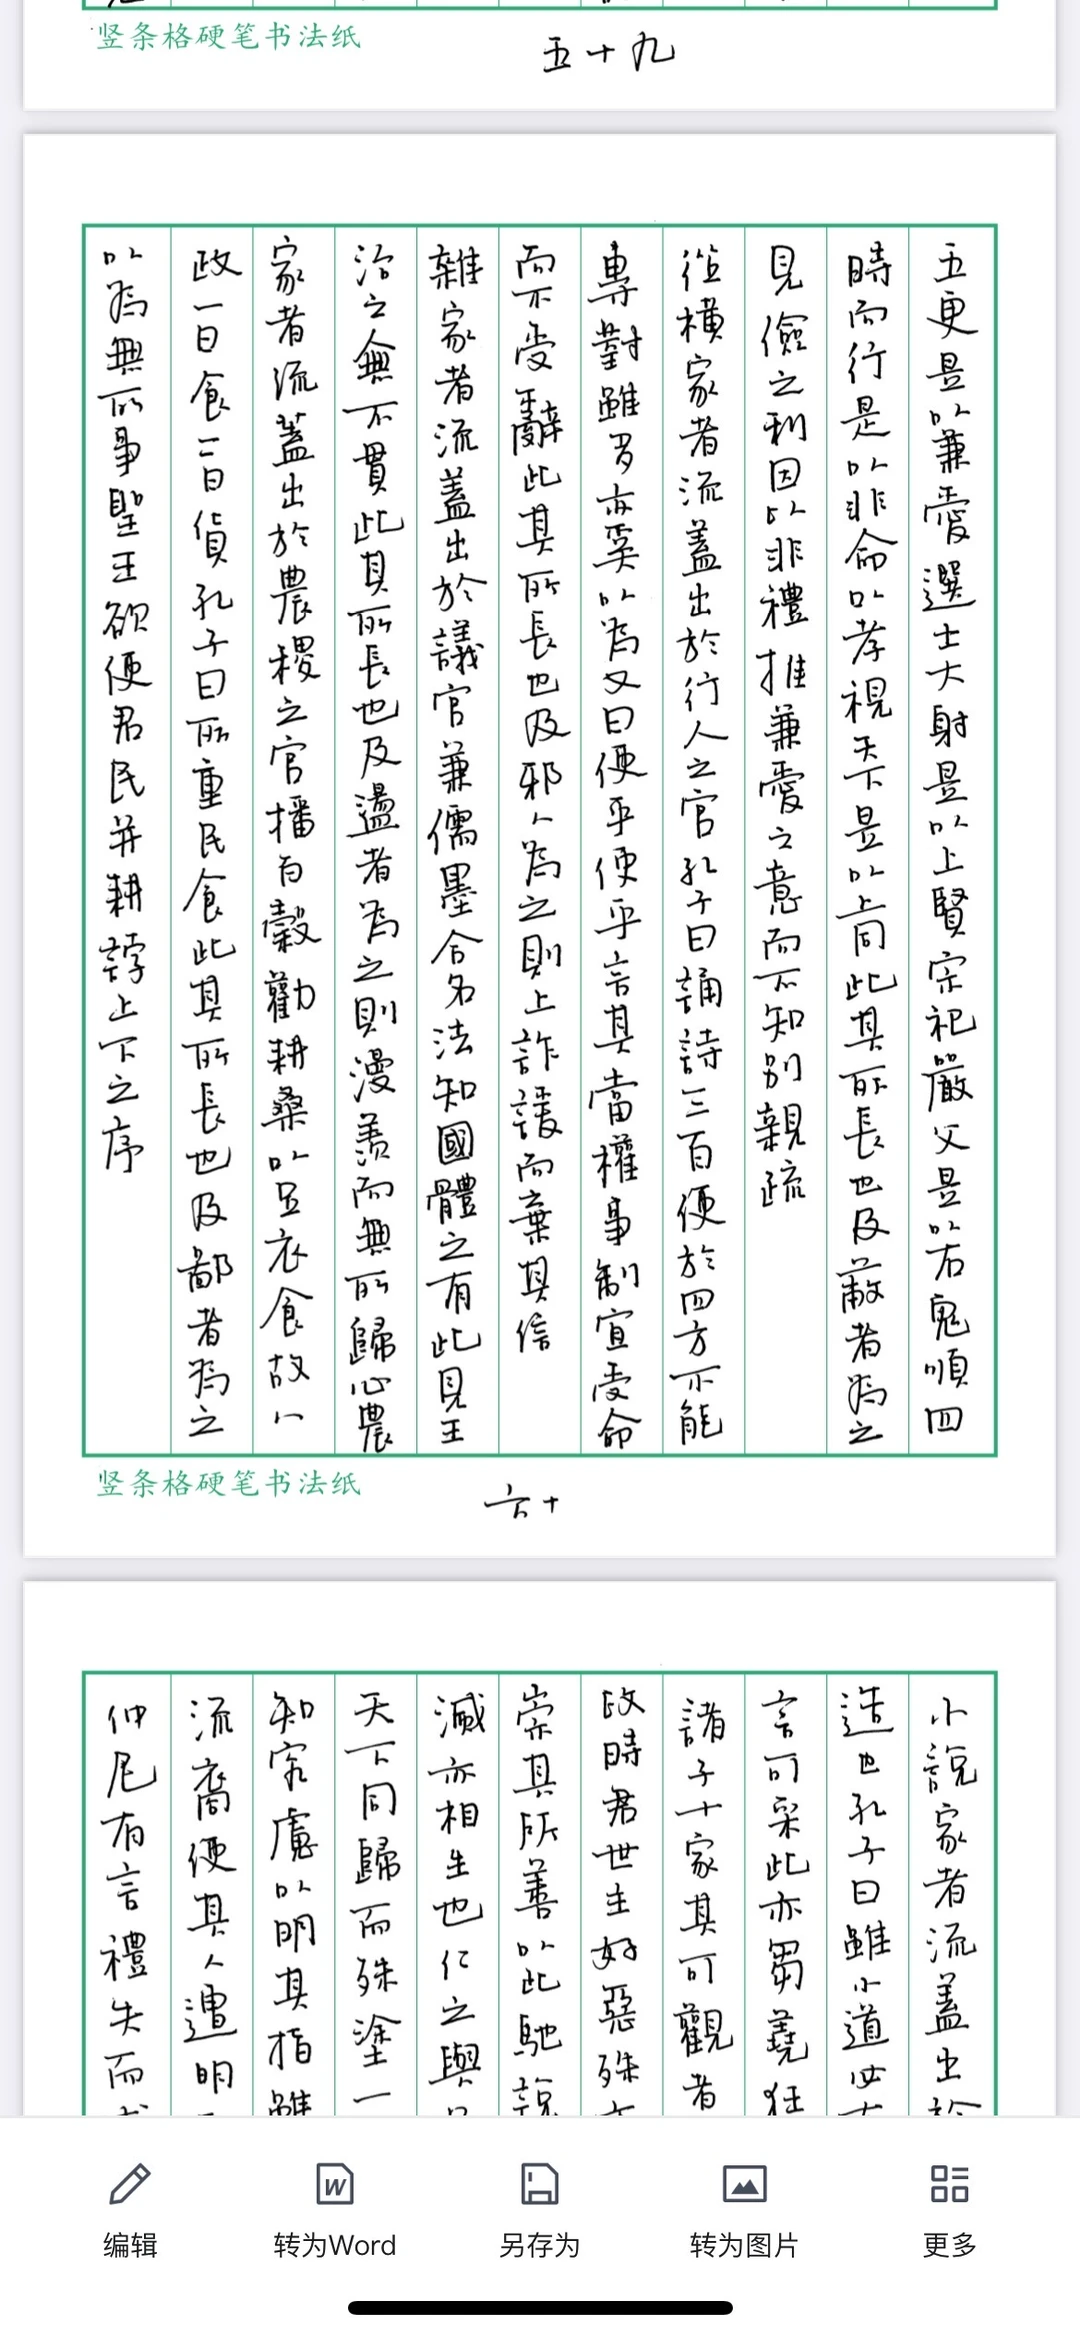 竖条格硬笔书法纸
五十九
五更是以兼愛選士大射是以上賢宗祀嚴父是以右鬼順四
時而行是以非命以孝視天下是以上同此其所長也及蔽者為之
見儉之利因以非禮推兼愛之意而不知別親疏
從橫家者流蓋出於行人之官孔子曰誦詩三百使於四方不能
專對雖多亦奚以為又曰使乎使乎言其當權事制宜受命
而不受辭此其所長也及邪人為之則上詐諼而棄其信
雜家者流蓋出於議官兼儒墨合名法知國體之有此見王
治之無不貫此其所長也及盪者為之則漫羨而無所歸心農
家者流蓋出於農稷之官播百穀勸耕桑以足衣食故八
政一曰食二曰貨孔子曰所重民食此其所長也及鄙者為之
以為無所事聖王欲使君民并耕誖上下之序
竖条格硬笔书法纸
六十
小說家者流蓋出於
造也孔子曰雖小道必
言可采此亦芻蕘狂
諸子十家其可觀者
政時君世主好惡殊
崇其所善以此馳說
滅亦相生也仁之與
天下同歸而殊塗一
知家慮以明其指雖
流裔使其人遭明
仲尼有言禮失而
编辑
转为Word
另存为
转为图片
更多